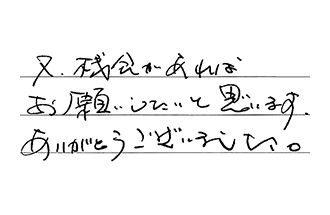 又、機会があれば
お願いしたいと思います。
ありがとうございました。